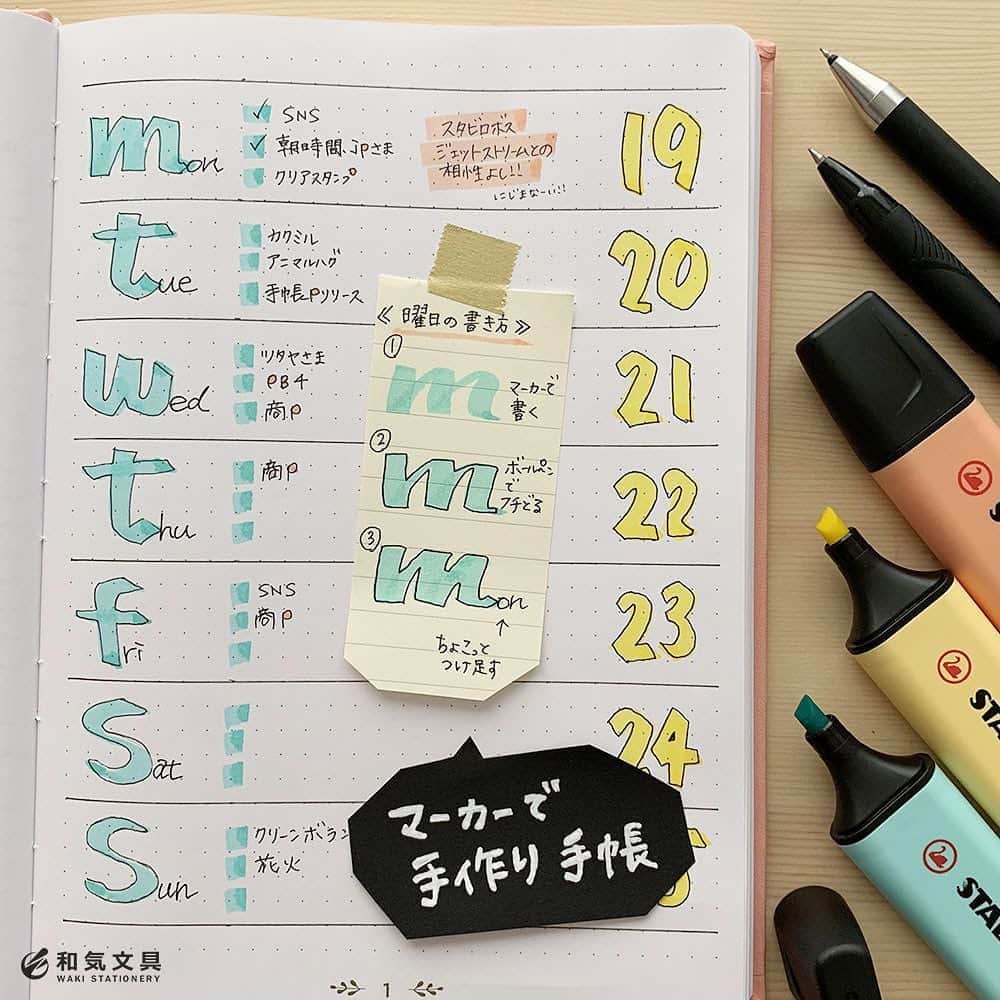 mon
✓ SNS
✓ 朝時間.jpさま
クリアスタンプ
スタビロボス
ジェットストリームとの
相性よし!!
にじまなーい!!
19
tue
カクミル
アニマルハグ
手帳Pリリース
20
wed
ツタヤさま
PB4
商P
21
thu
商P
22
fri
SNS
商P
23
Sat
24
Sun
クリーンボラン
花火
≪曜日の書き方≫
①
m
マーカーで
書く
②
m
ボールペン
で
フチどる
③
mon
↑
ちょこっと
つけ足す
マーカーで
手作り手帳
STA
STAB
和気文具
WAKI STATIONERY
1